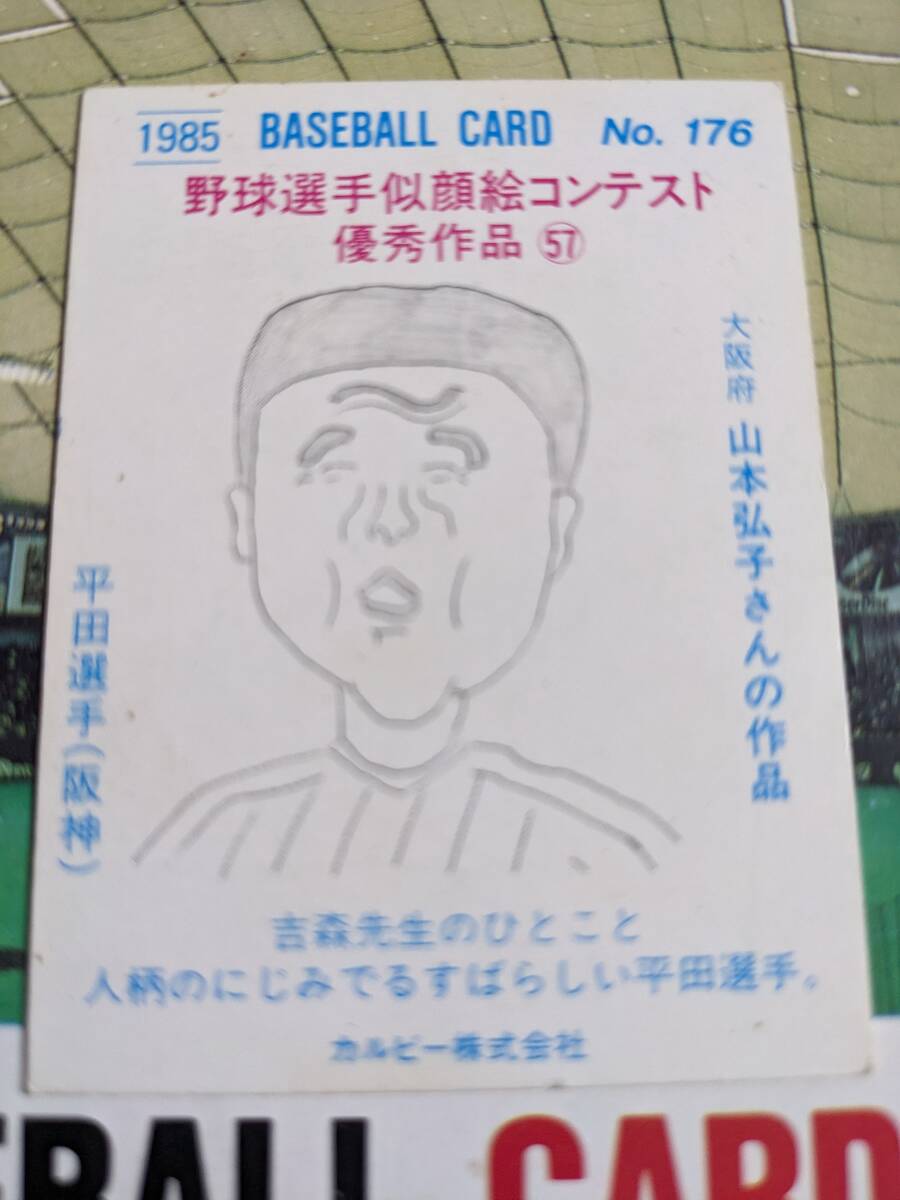 1985 BASEBALL CARD No. 176
野球選手似顔絵コンテスト
優秀作品 57
大阪府 山本弘子さんの作品
平田選手(阪神)
吉森先生のひとこと
人柄のにじみでるすばらしい平田選手。
カルビー株式会社
EBALL CARD